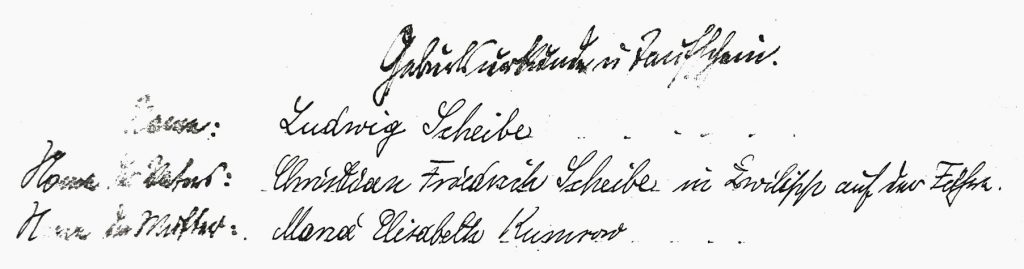 Geburtsurkunde u Taufschein.
Name: Ludwig Scheibe
Name des Vaters: Christian Friedrich Scheibe in Zwilipp auf der Fähre.
Name der Mutter: Maria Elisabeth Kumrow